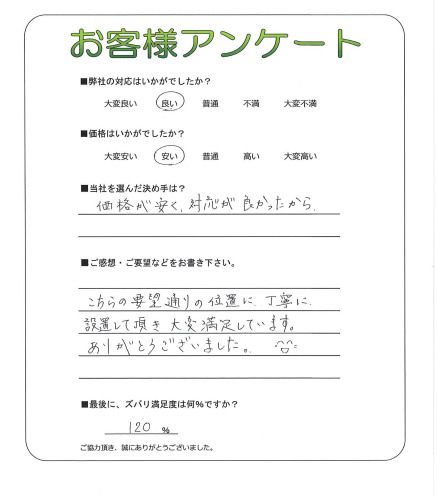 お客様アンケート
■弊社の対応はいかがでしたか？
大変良い 良い 普通 不満 大変不満
■価格はいかがでしたか？
大変安い 安い 普通 高い 大変高い
■当社を選んだ決め手は？
価格が安く、対応が良かったから。
■ご感想・ご要望などをお書き下さい。
こちらの要望通りの位置に、丁寧に、
設置して頂き大変満足しています。
ありがとうございました。
■最後に、ズバリ満足度は何％ですか？
120 ％
ご協力頂き、誠にありがとうございました。